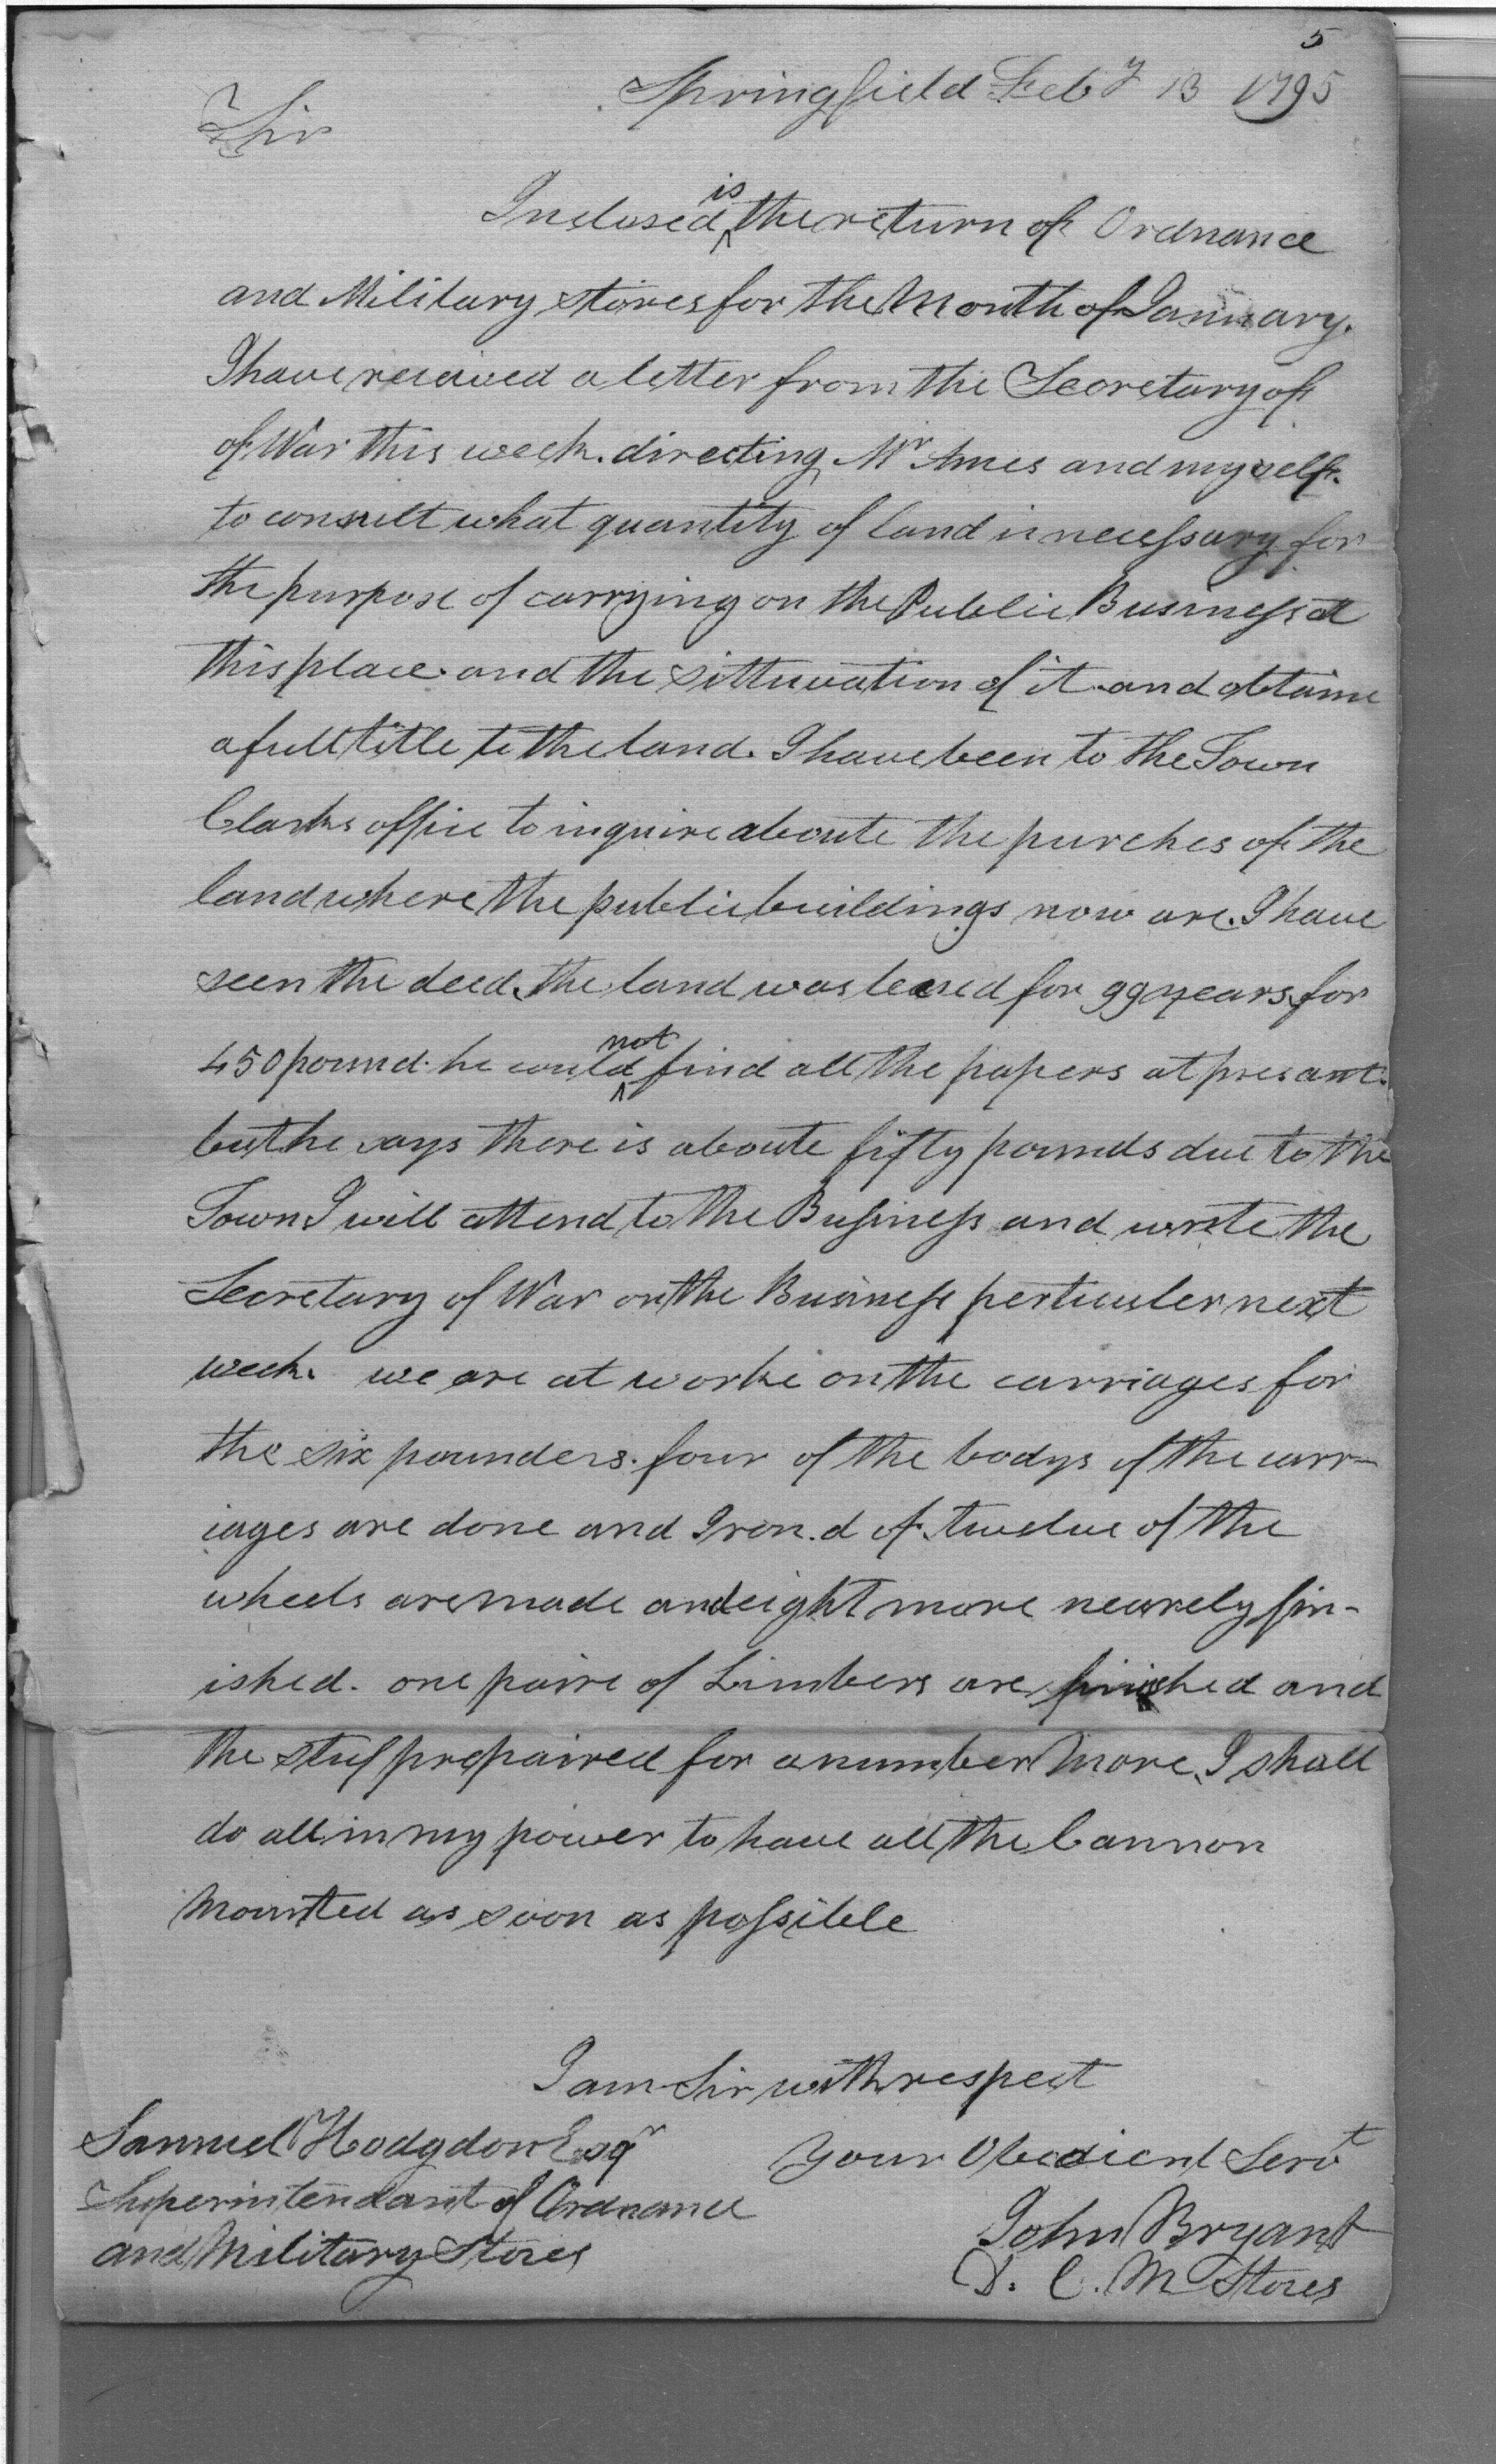 5
Springfield Feby 13 1795
Sir
Inclosed is the return of Ordnance
and Military stores for the Month of January.
I have received a letter from the Secretary of
of War this week. directing Mr Ames and myself.
to consult what quantity of land is necessary for
the purpose of carrying on the Public Business at
this place. and the sittuation of it and obtaine
a full title to the land. I have been to the Town
Clarks office to inquire aboute the purches of the
land where the public buildings now are. I have
seen the deed, the land was leased for 99 years for
450 pound. he could not find all the papers at presant.
but he says there is aboute fifty pounds due to the
Town I will attend to the Business and write the
Secretary of War on the Business perticuler next
week. we are at worke on the carriages for
the six pounders. four of the bodys of the carr-
iages are done and Iron.d of. twelve of the
wheels are made and eight more nearely fin-
ished. one paire of Limbers are finished and
the stuf prepaired for a number more, I shall
do all in my power to have all the Cannon
Mounted as soon as possible
I am Sir with respect
your Obedient Servt
John Bryant
D. C. M Stores
Samuel Hodgdon Esqr
Superintendant of Ordnance
and Military Stores